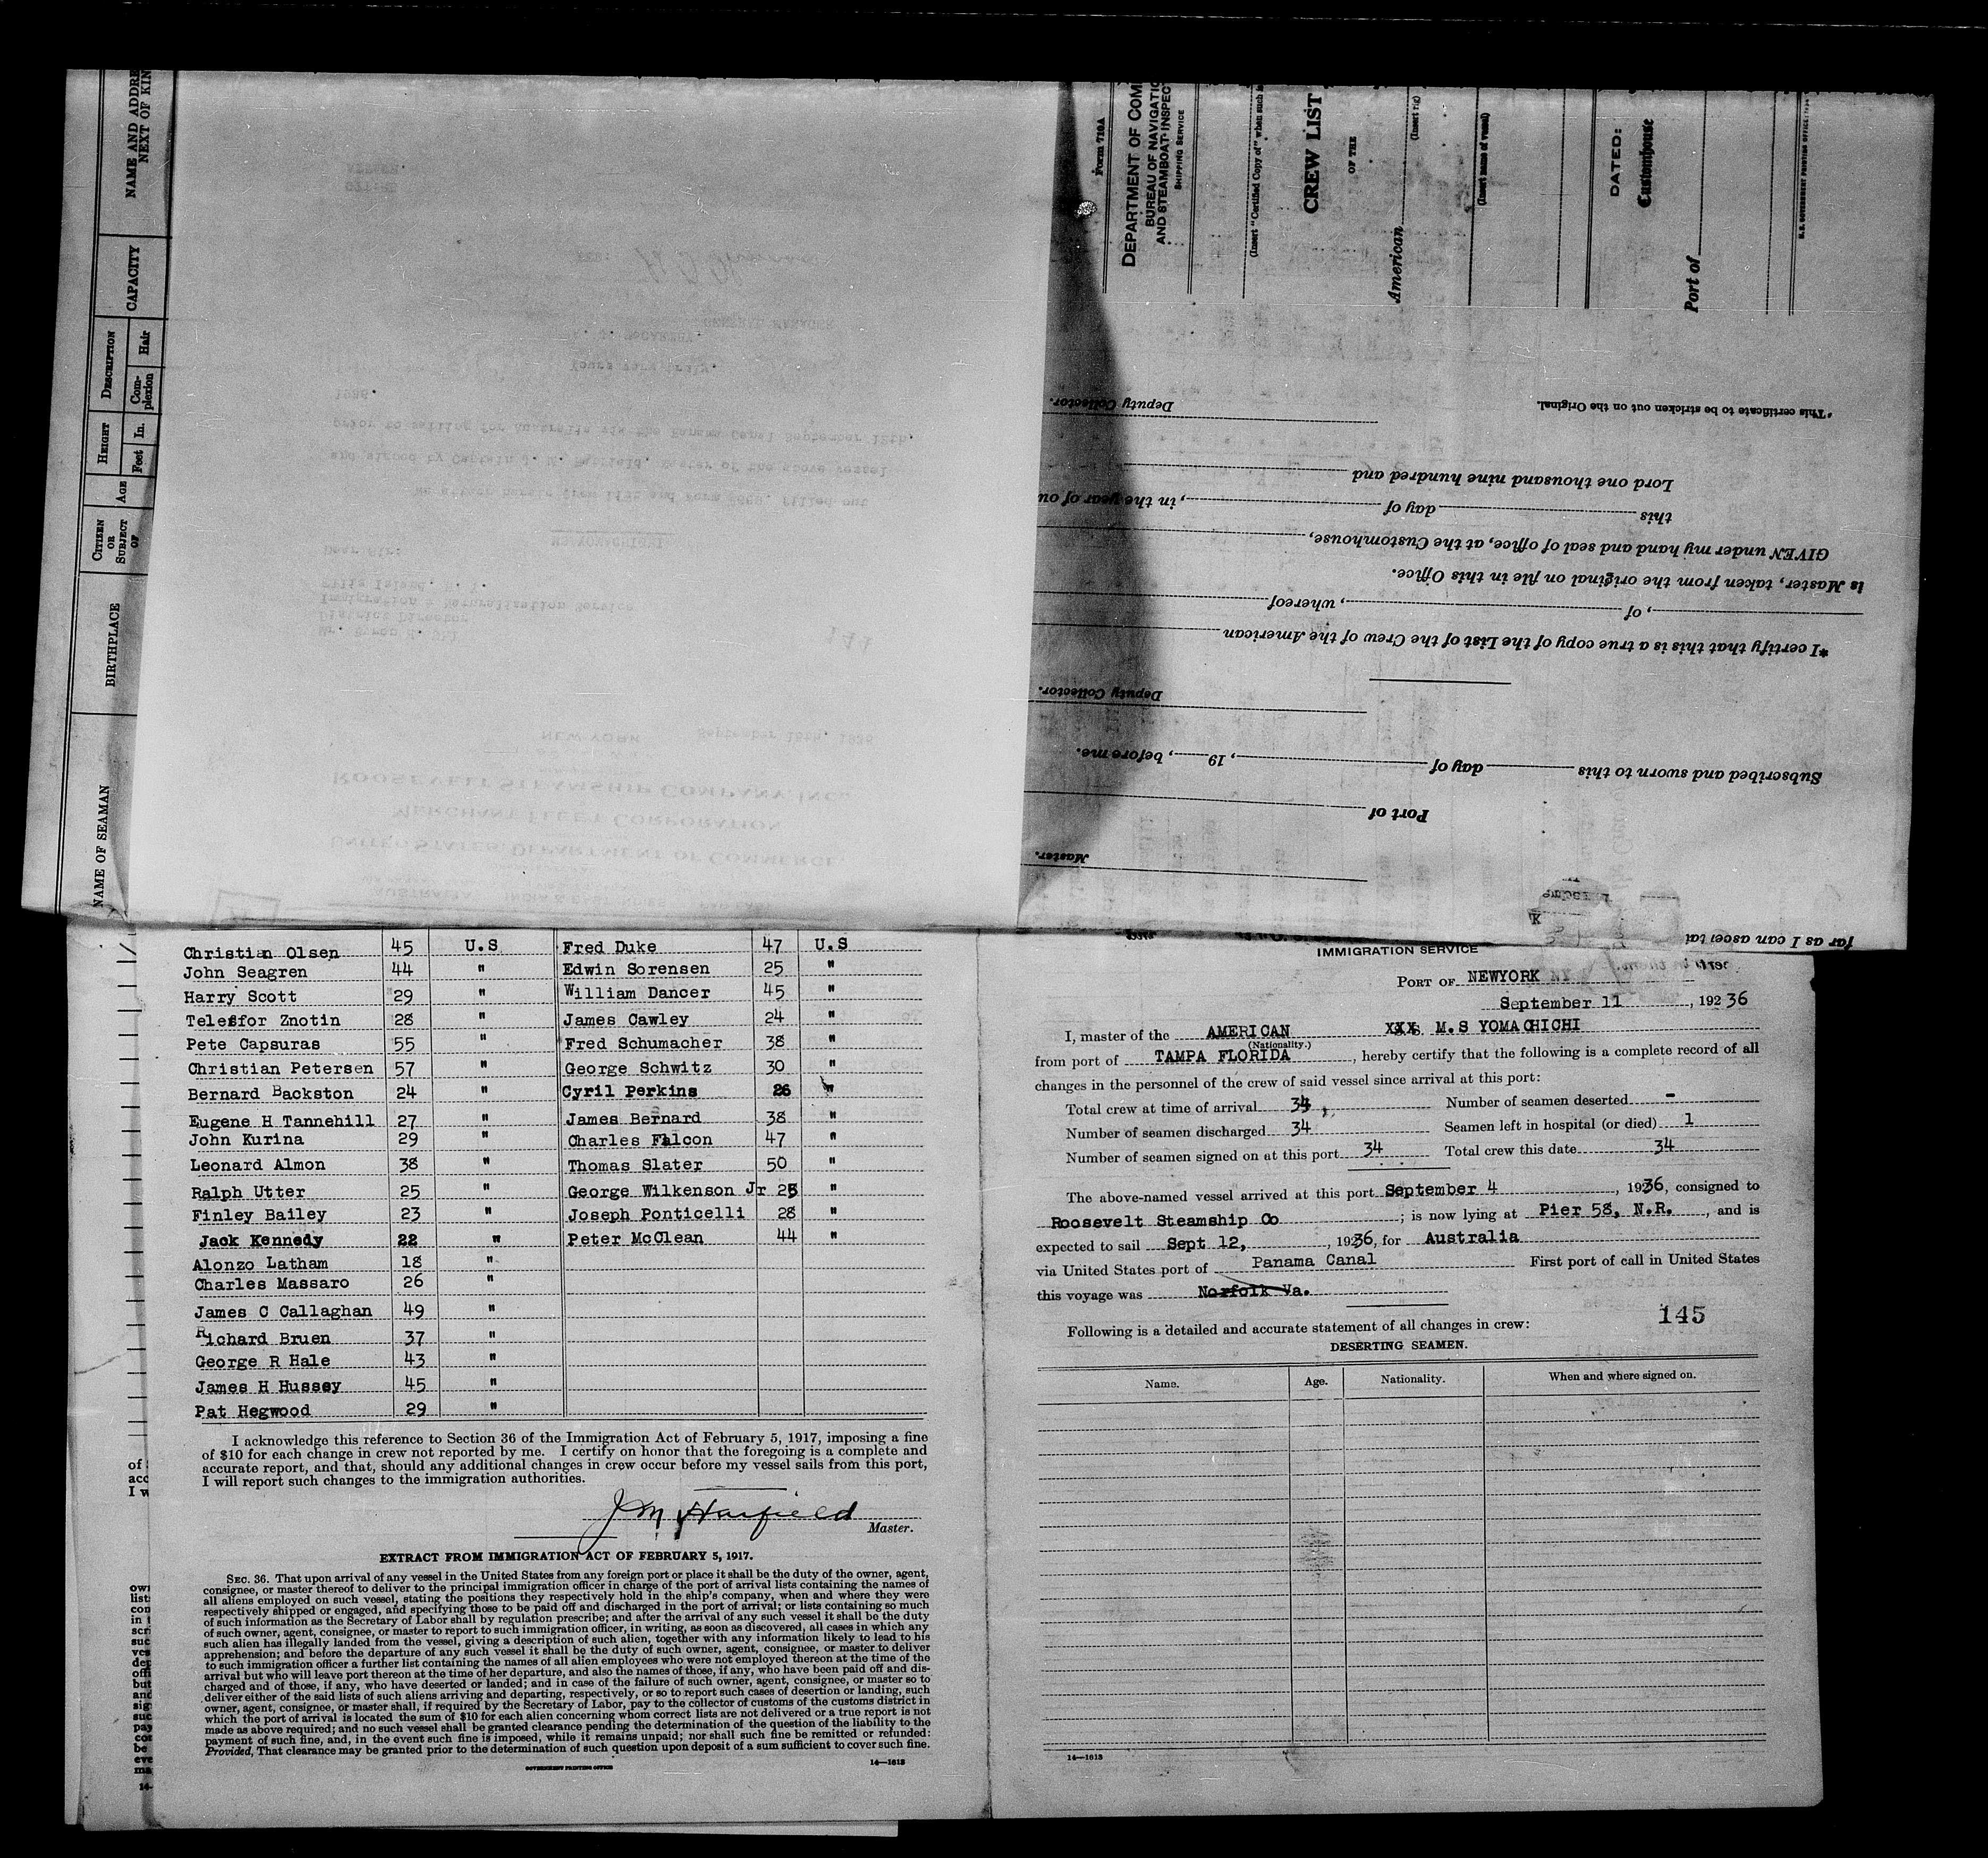 NAME OF SEAMAN
BIRTHPLACE
CITIZEN
OR
SUBJECT
OF
AGE
HEIGHT
Feet
In.
DESCRIPTION
Com-
plexion
Hair
CAPACITY
NAME AND ADDRE
NEXT OF KIN
FORM 710A
DEPARTMENT OF COM
BUREAU OF NAVIGATIO
AND STEAMBOAT INSPEC
SHIPPING SERVICE
(Insert "Certified Copy of" when such is
CREW LIST
OF THE
American
(Insert rig)
(Insert name of vessel)
DATED:
Customhouse
Port of
far as I can ascertai
Master.
Port of
Subscribed and sworn to this day of , 19 , before me.
Deputy Collector.
*I certify that this is a true copy of the List of the Crew of the American
, of , whereof
is Master, taken from the original on file in this Office.
GIVEN under my hand and seal of office, at the Customhouse,
this day of , in the year of ou
Lord one thousand nine hundred and
Deputy Collector.
*This certificate to be stricken out on the Original.
UNITED STATES DEPARTMENT OF COMMERCE
MERCHANT FLEET CORPORATION
ROOSEVELT STEAMSHIP COMPANY, INC.
NEW YORK September 15th, 1936
District Director
Immigration & Naturalization Service
Ellis Island, N. Y.
Dear Sir:
and signed by Captain J. M. Hatfield, Master of the above vessel
prior to sailing for Australia via the Panama Canal September 12th,
1936.
Yours very truly,
GENERAL MANAGER
Christian Olsen 45 U.S Fred Duke 47 U.S
John Seagren 44 " Edwin Sorensen 25 "
Harry Scott 29 " William Dancer 45 "
Telesfor Znotin 28 " James Cawley 24 "
Pete Capsuras 55 " Fred Schumacher 38 "
Christian Petersen 57 " George Schwitz 30 "
Bernard Backston 24 " Cyril Perkins 26 "
Eugene H Tannehill 27 " James Bernard 38 "
John Kurina 29 " Charles Falcon 47 "
Leonard Almon 38 " Thomas Slater 50 "
Ralph Utter 25 " George Wilkenson Jr "
Finley Bailey 23 " Joseph Ponticelli 28 "
Jack Kennedy 22 " Peter McClean 44 "
Alonzo Latham 18 "
Charles Massaro 26 "
James C Callaghan 49 "
Richard Bruen 37 "
George R Hale 43 "
James H Hussey 45 "
Pat Hegwood 29 "
I acknowledge this reference to Section 36 of the Immigration Act of February 5, 1917, imposing a fine
of $10 for each change in crew not reported by me. I certify on honor that the foregoing is a complete and
accurate report, and that, should any additional changes in crew occur before my vessel sails from this port,
I will report such changes to the immigration authorities.
J M Hatfield
Master.
EXTRACT FROM IMMIGRATION ACT OF FEBRUARY 5, 1917.
SEC. 36. That upon arrival of any vessel in the United States from any foreign port or place it shall be the duty of the owner, agent,
consignee, or master thereof to deliver to the principal immigration officer in charge of the port of arrival lists containing the names of
all aliens employed on such vessel, stating the positions they respectively hold in the ship's company, when and where they were
respectively shipped or engaged, and specifying those to be paid off and discharged in the port of arrival; or lists containing so much
of such information as the Secretary of Labor shall by regulation prescribe; and after the arrival of any such vessel it shall be the duty
of such owner, agent, consignee, or master to report to such immigration officer, in writing, as soon as discovered, all cases in which any
such alien has illegally landed from the vessel, giving a description of such alien, together with any information likely to lead to his
apprehension; and before the departure of any such vessel it shall be the duty of such owner, agent, consignee, or master to deliver
to such immigration officer a further list containing the names of all alien employees who were not employed thereon at the time of the
arrival but who will leave port thereon at the time of her departure, and also the names of those, if any, who have been paid off and dis-
charged and of those, if any, who have deserted or landed; and in case of the failure of such owner, agent, consignee, or master so to
deliver either of the said lists of such aliens arriving and departing, respectively, or so to report such cases of desertion or landing, such
owner, agent, consignee, or master shall, if required by the Secretary of Labor, pay to the collector of customs of the customs district in
which the port of arrival is located the sum of $10 for each alien concerning whom correct lists are not delivered or a true report is not
made as above required; and no such vessel shall be granted clearance pending the determination of the question of the liability to the
payment of such fine, and, in the event such fine is imposed, while it remains unpaid; nor shall such fine be remitted or refunded:
Provided, That clearance may be granted prior to the determination of such question upon deposit of a sum sufficient to cover such fine.
GOVERNMENT PRINTING OFFICE
14—1613
IMMIGRATION SERVICE
PORT OF NEWYORK NY
September 11, 192 36
I, master of the AMERICAN XXX S. M.S YOMACHICHI
(Nationality.)
from port of TAMPA FLORIDA, hereby certify that the following is a complete record of all
changes in the personnel of the crew of said vessel since arrival at this port:
Total crew at time of arrival 34 Number of seamen deserted -
Number of seamen discharged 34 Seamen left in hospital (or died) 1
Number of seamen signed on at this port 34 Total crew this date 34
The above-named vessel arrived at this port September 4, 1936, consigned to
Roosevelt Steamship Co; is now lying at Pier 58, N.R., and is
expected to sail Sept 12, 1936, for Australia
via United States port of Panama Canal First port of call in United States
this voyage was Norfolk Va.
145
Following is a detailed and accurate statement of all changes in crew:
DESERTING SEAMEN.
Name. Age. Nationality. When and where signed on.
14—1613